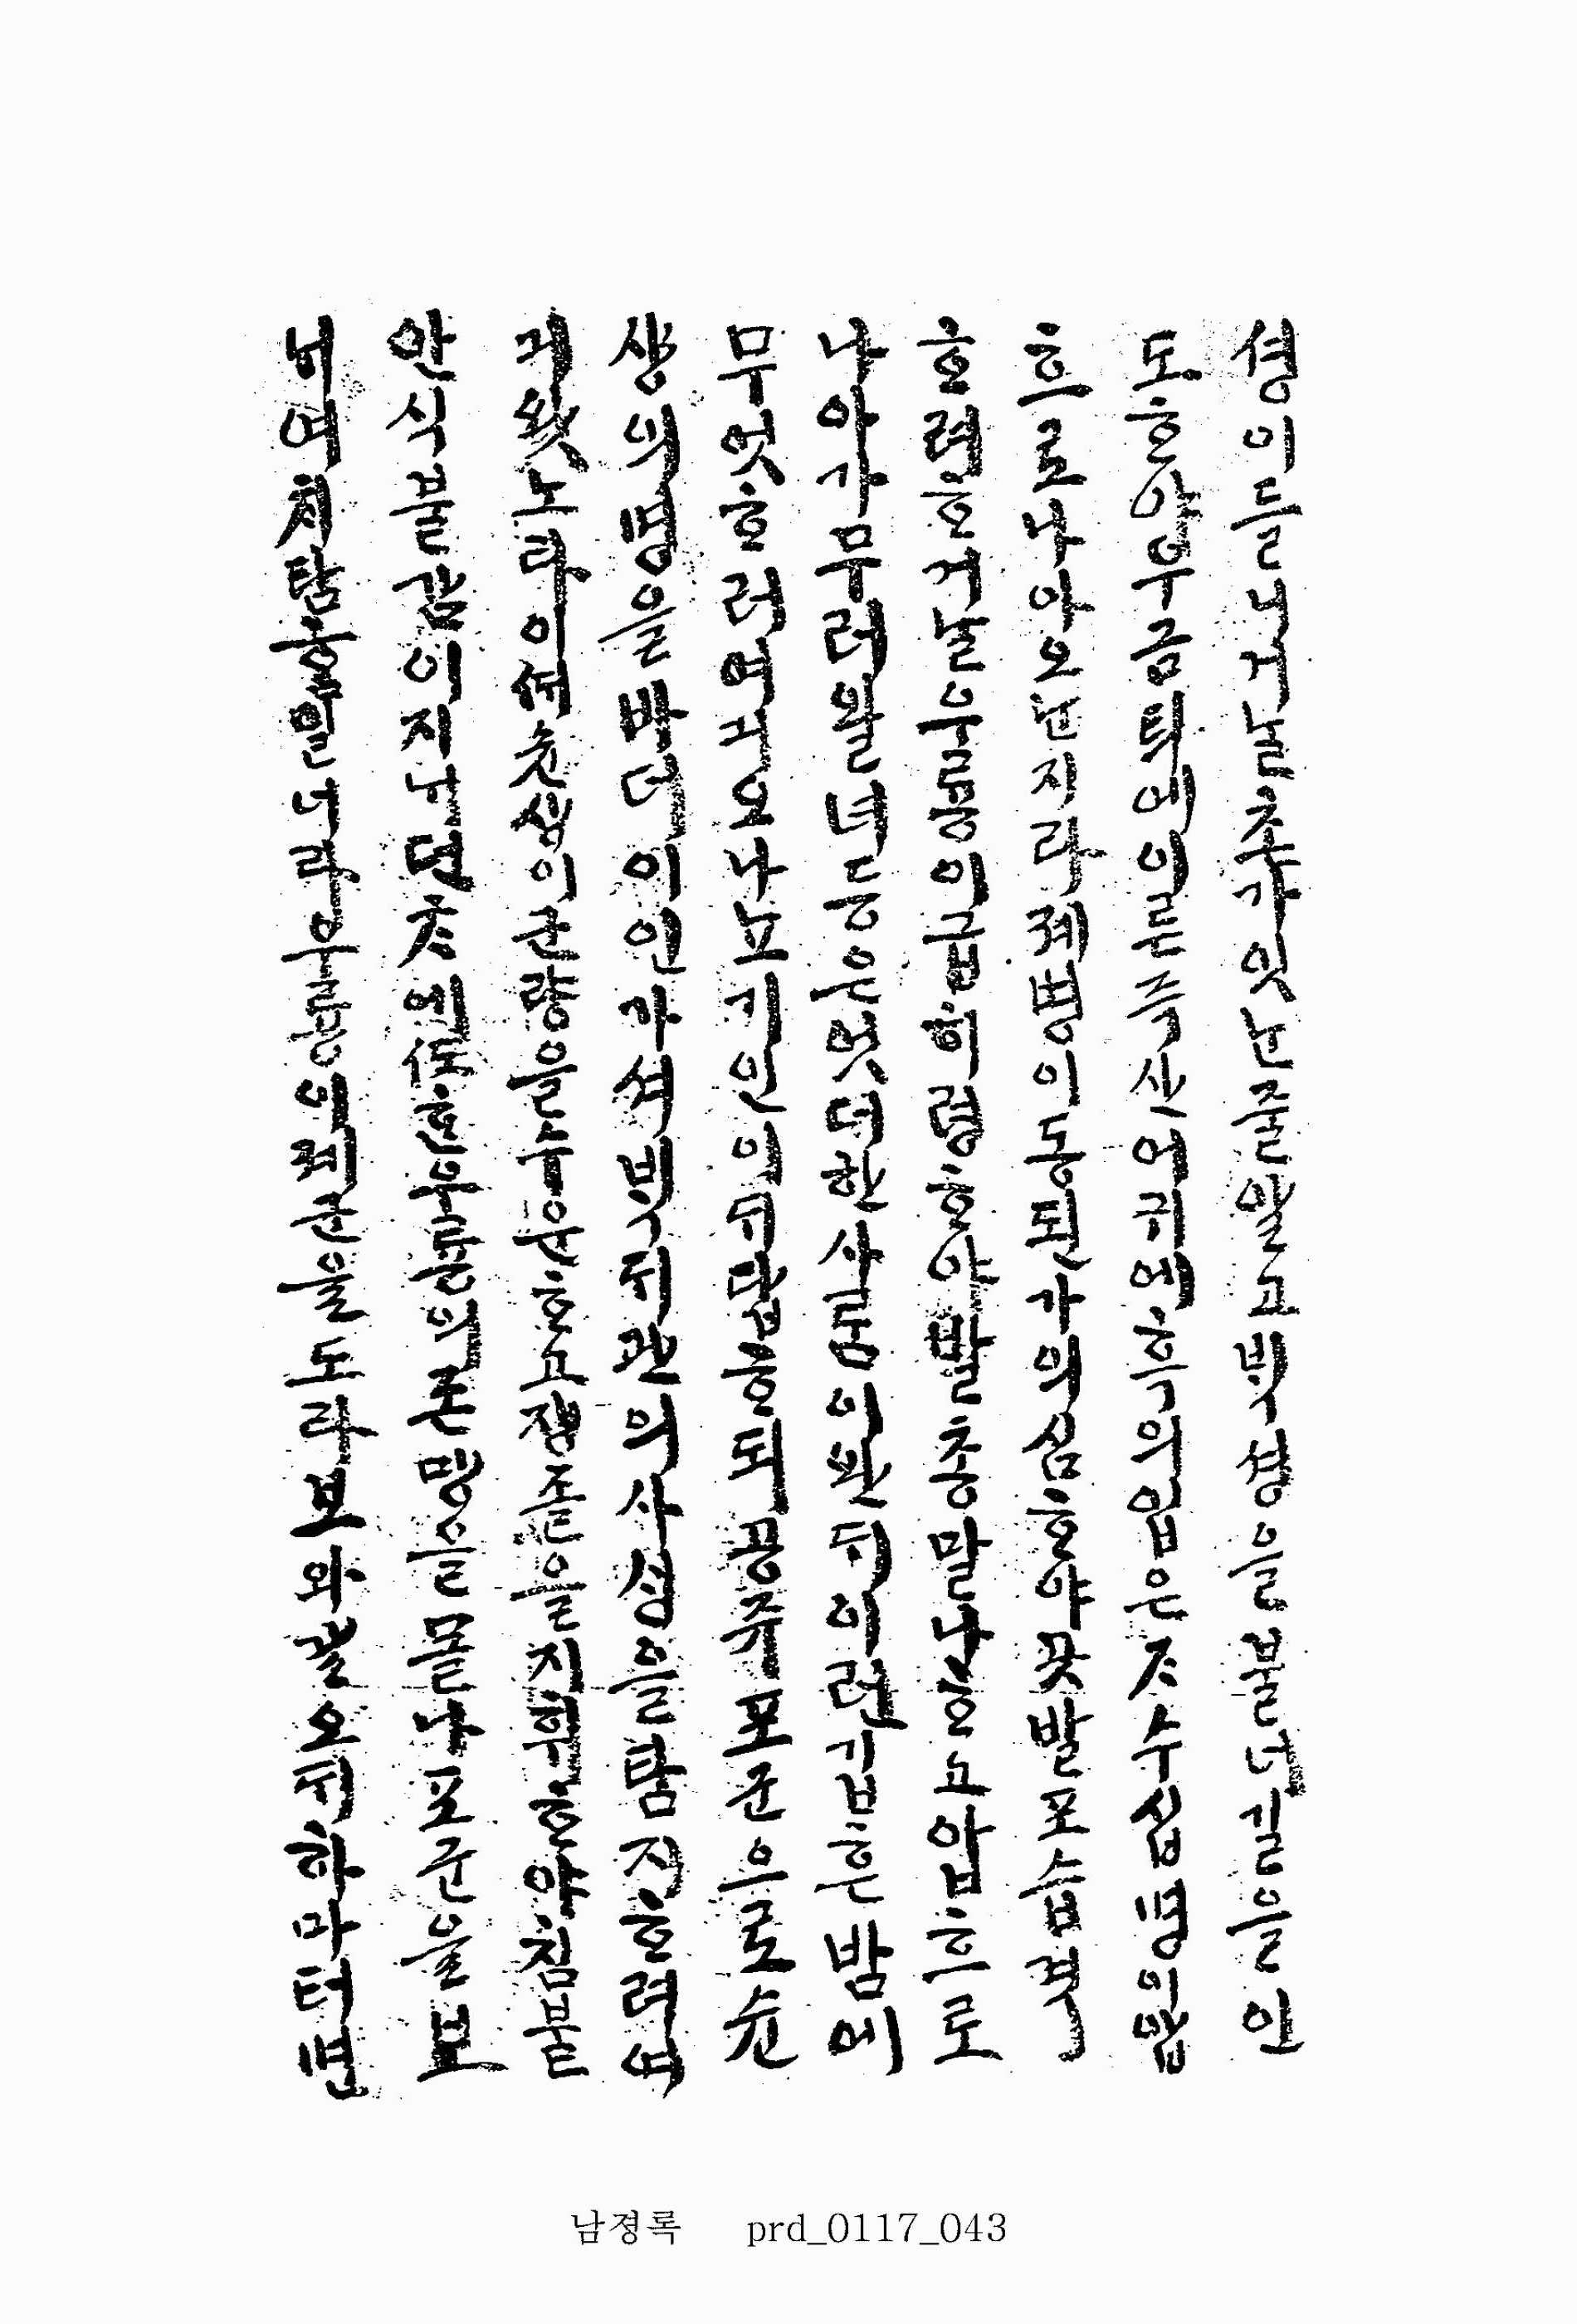 셩이들니거놀촌가잇난줄알고빅셩을불너길을인
도ᄒᆞ야우금틔에이른즉산어귀에흑의입은ᄌᆞ수십명이압
흐로나아오난지라졔병이동된가의심ᄒᆞ야꼿발포습격
ᄒᆞ려ᄒᆞ거날우룡이급히령ᄒᆞ야발총말나ᄒᆞ고압흐로
나아가무러왈녀등은엇더한사ᄅᆞᆷ이완ᄃᆡ이런깁흔밤에
무엇ᄒᆞ러여긔오나뇨기인이ᄃᆡ답ᄒᆞ되공쥬포군으로션
생의명을바더이인가셔빅뒤관의사셩을탐지ᄒᆞ려여
긔왓노라이ᄯᅢ션ᄉᆡᆼ이군량을수운ᄒᆞ고쟝졸을지휘ᄒᆞ야침불
안식불감이지ᄂᆡ던ᄎᆞ에ᄯᅩᄒᆞᆫ우룡의존망을몰나포군을보
ᄂᆡ여ᄎᆡ탐홈일너라우룡이졔군을도라보와갈오ᄃᆡ하마터면
남졍록 prd_0117_043